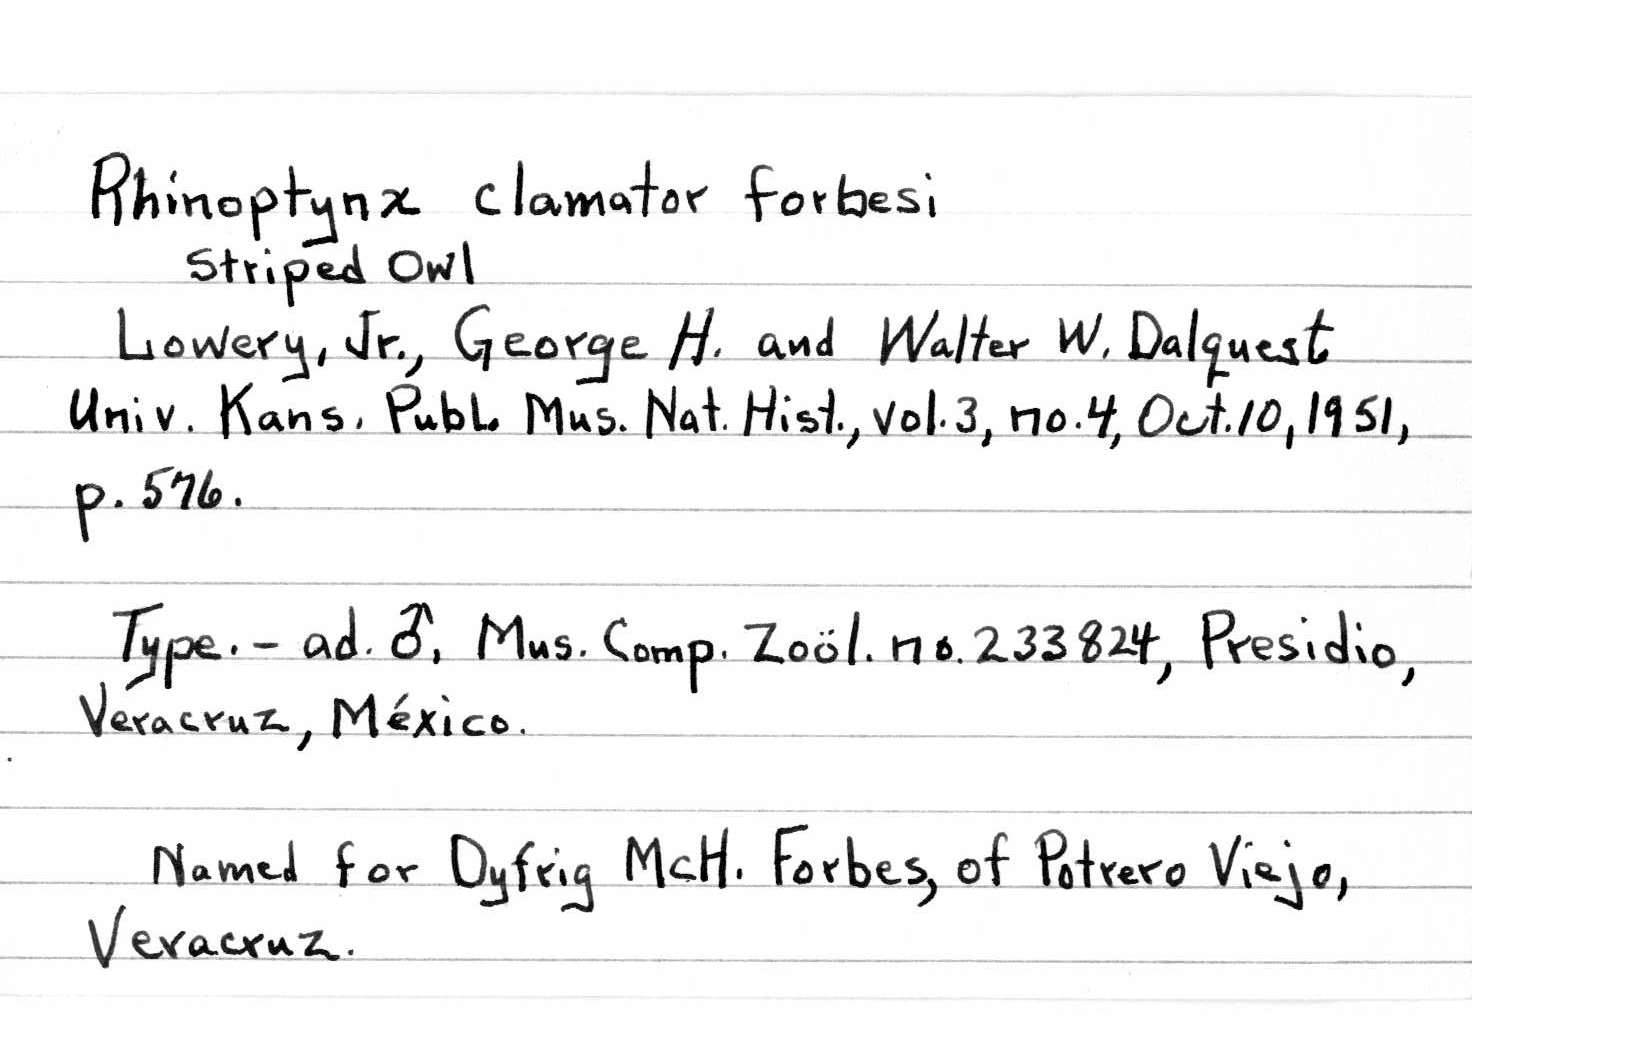 Rhinoptynx clamator forbesi
Striped Owl
Lowery, Jr., George H. and Walter W. Dalquest
Univ. Kans. Publ. Mus. Nat. Hist., vol. 3, no. 4, Oct. 10, 1951,
p. 576.
Type. - ad. ♂, Mus. Comp. Zoöl. no. 233824, Presidio,
Veracruz, México.
Named for Dyfrig McH. Forbes, of Potrero Viejo,
Veracruz.